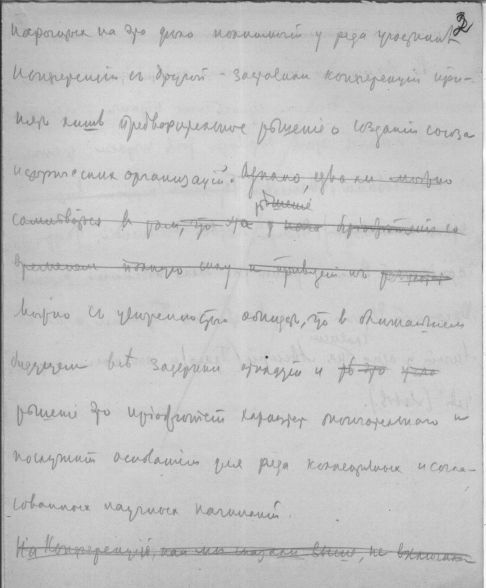 2
которых на это дело полномочий у ряда участников
Конференции, с другой - заставили конференцию при-
нять лишь предварительное решение о создании союза
исторических организаций. Однако, едва ли можно
решение
сомневаться в том, что это
временем полную силу и приведет к
Можно с уверенностью ожидать, что в ближайшем
будущем все задержки отпадут и
решение это приобретет характер окончательного и
послужит основанием для ряда коллективных и согла-
сованных научных начинаний.
На Конференции, как мы сказали выше, не включали